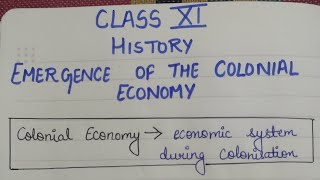 CLASS XI
HISTORY
EMERGENCE OF THE COLONIAL
ECONOMY
Colonial Economy → economic system
during Colonisation